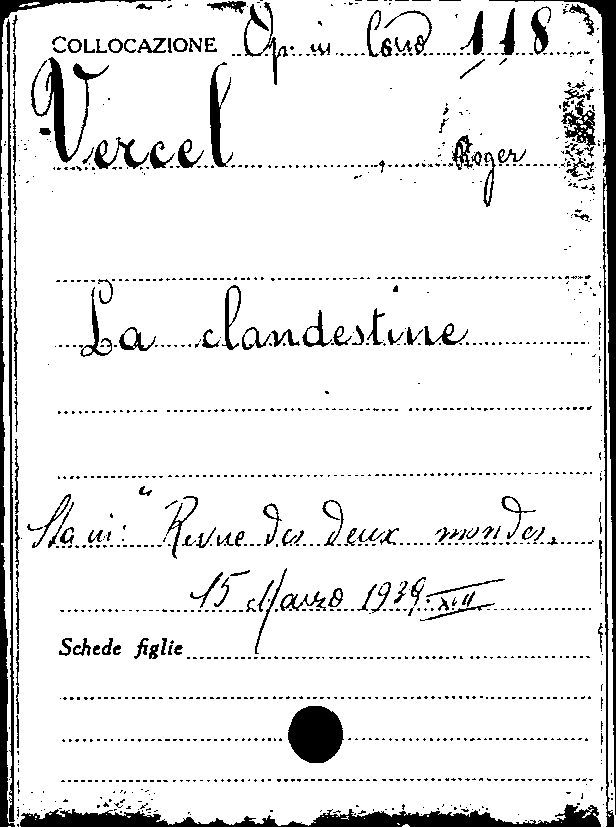 COLLOCAZIONE Op. in Corso 118
Vercel, Roger
La clandestine
Sta in: " Revue des deux mondes.
15 Marzo 1939. XVII
Schede figlie